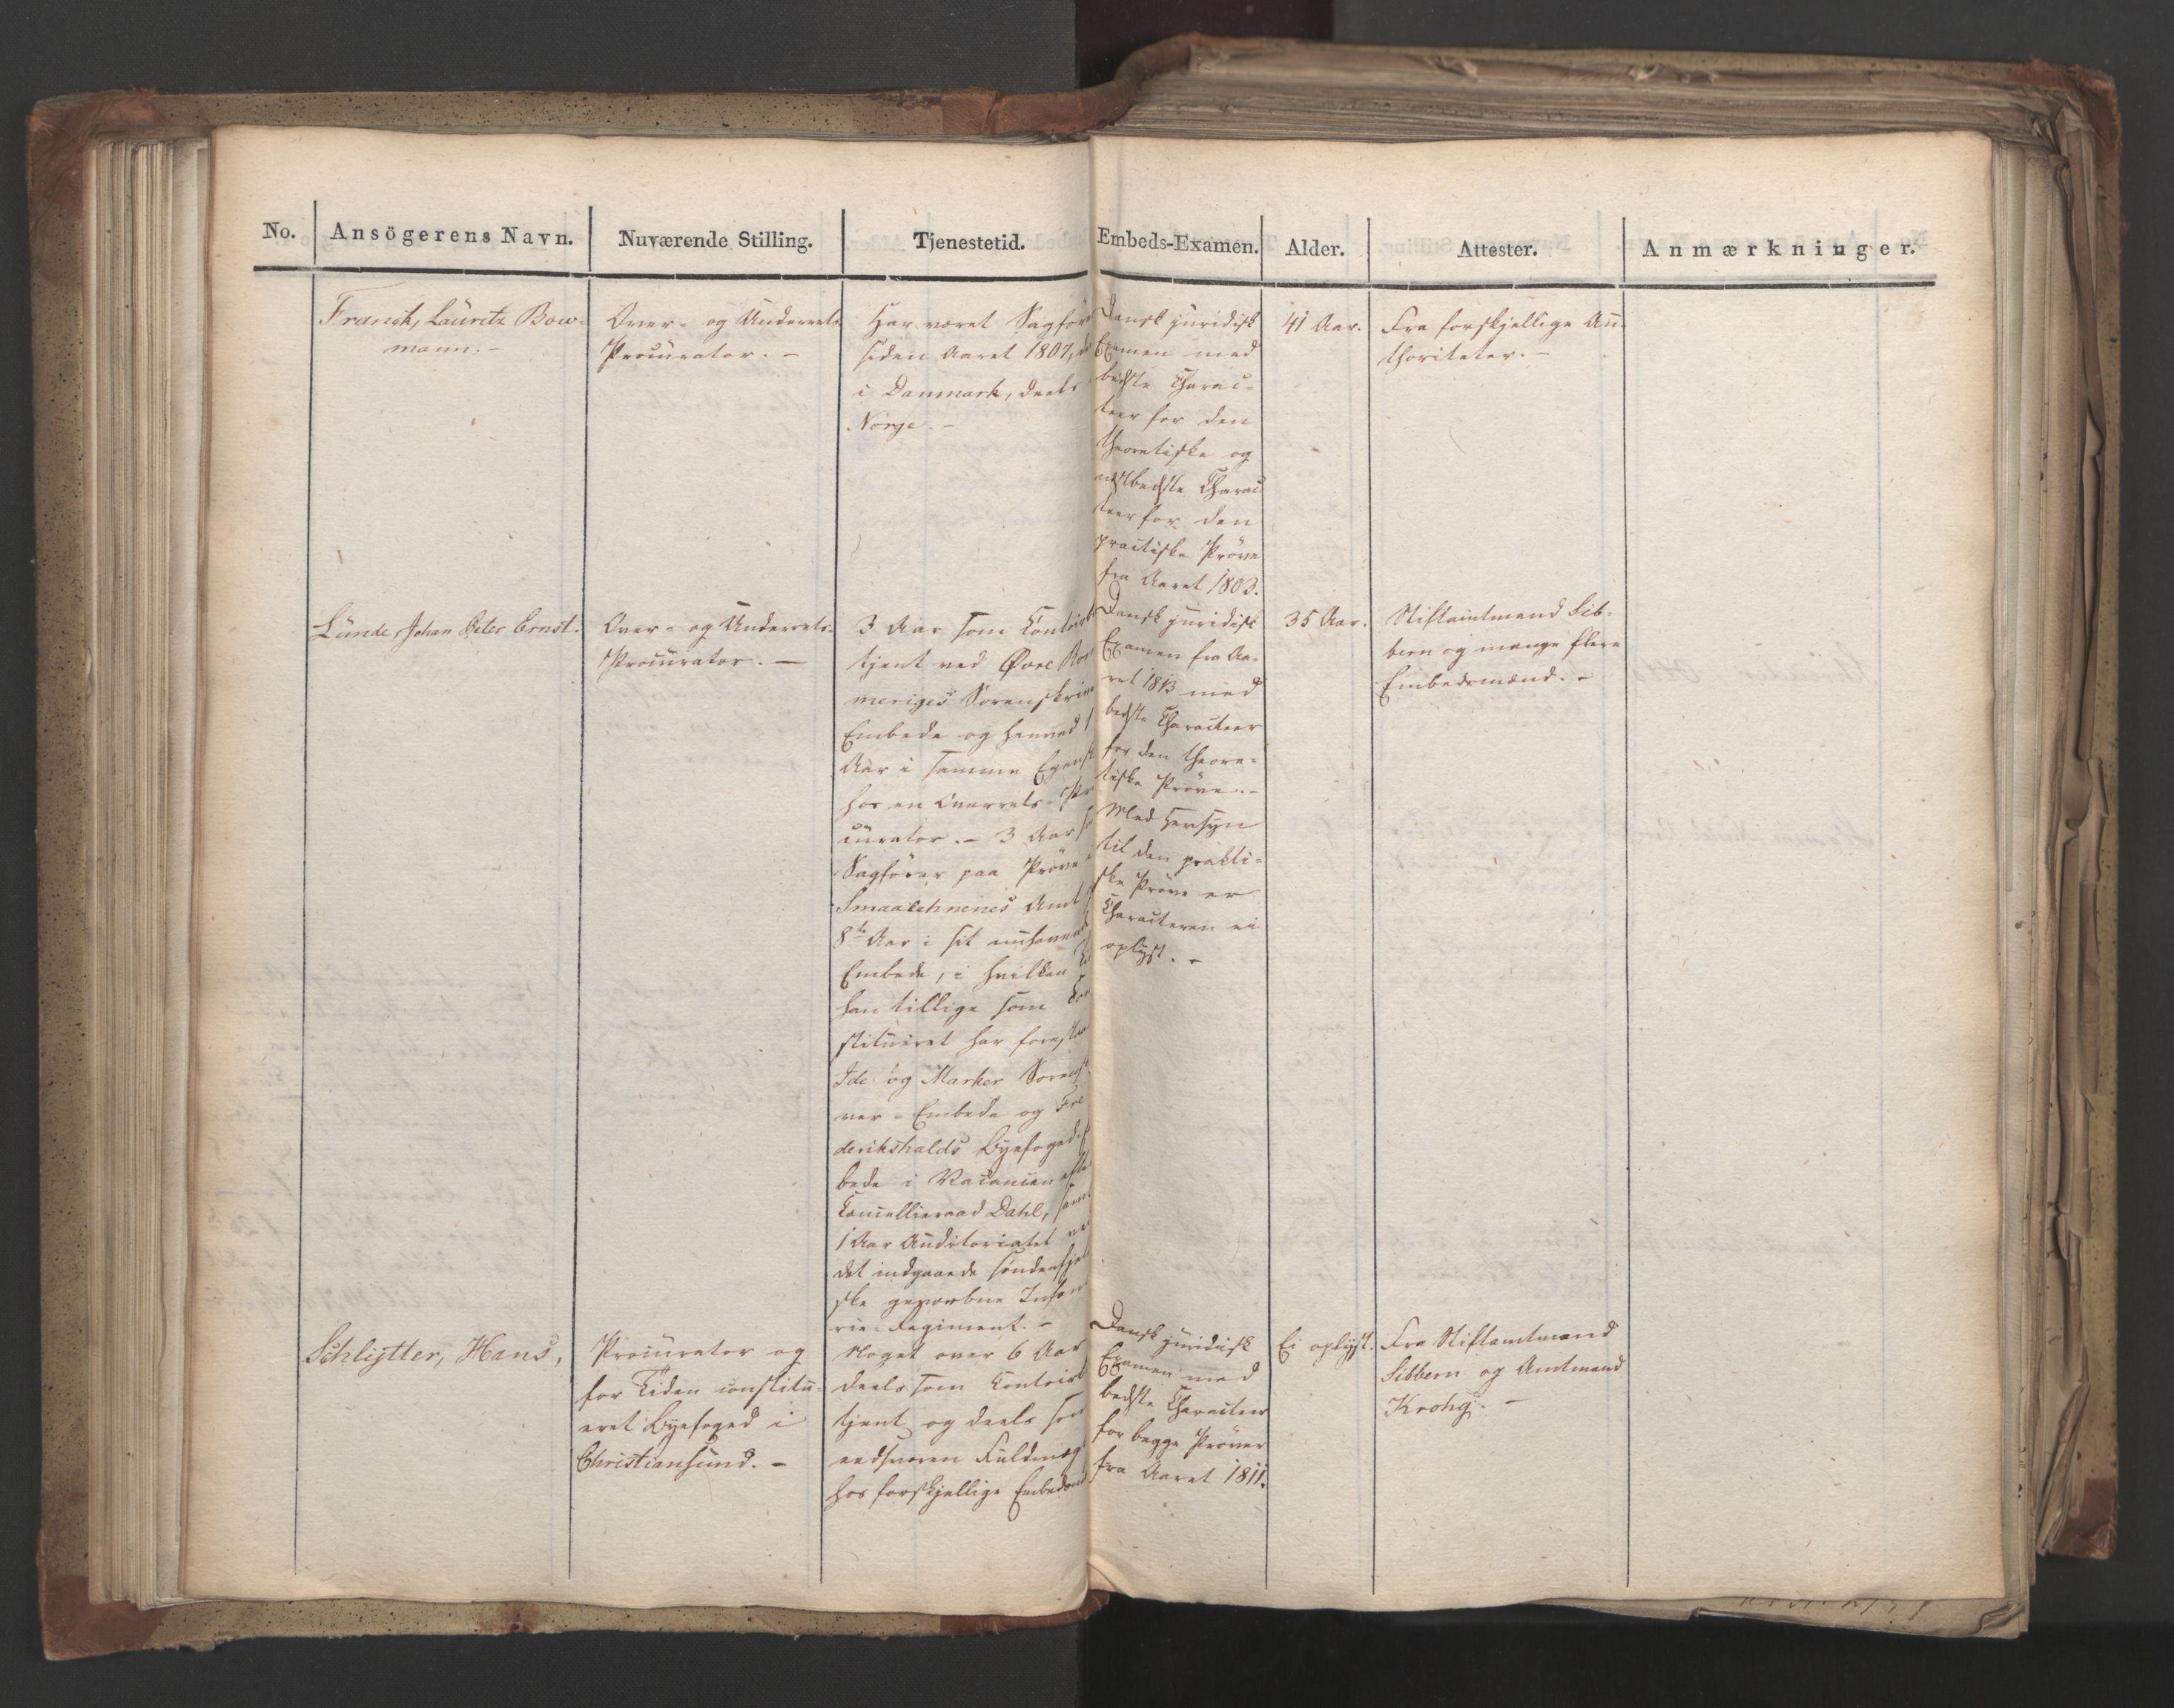 No.
Ansögerens Navn.
Nuværende Stilling.
Tjenestetid.
Embeds-Examen.
Alder.
Attester.
Anmærkninger.
Franck, Lauritz Bow-
mann. -
Over- og Underrets-
Procurator. -
Har været Sagfører
siden Aaret 1807,
i Danmark, deels
Norge. -
Dansk juridisk
Examen med
bedste Charac-
teer for den
theoretiske og
næstbedste Charac
teer for den
practiske Prøve
fra Aaret 1803.
41 Aar.
Fra forskjellige Au-
thoriteter. -
Lunde, Johan Peter Ernst.
Over- og Underrets-
Procurator. -
3 Aar som Contoirbe
tjent ved Øvre Ro
meriges Sorenskriver
Embede og henved 1
Aar i samme Egensk
hos en Overrets-Pr
curator. - 3 Aar so
Sagfører paa Prøve
Smaalehnenes Amt
8te Aar i sit nuhavend
Embede, i hvilken
han tillige som Con
stitueret har forestaa
Ide og Marker Sorensk
ver-Embede og Fre
derikshalds Byefoged
bede i Vacancen efte
Cancelliraad Dahl, samt
1 Aar Auditoriatet ve
det indgaaede søndenfjel
ske gevorbne Infan
rie Regiment. -
Dansk juridisk
Examen fra Aa-
ret 1813 med
bedste Characteer
for den theore-
tiske Prøve. -
Med Hensyn
til den prakti-
ske Prøve er
Characteren ei
oplyst. -
35 Aar.
Stiftamtmand Sib-
bern og mange flere
Embedsmænd. -
Schlytter, Hans,
Procurator og
for Tiden constitu-
eret Byefoged i
Christiansund. -
Noget over 6 Aar
deels som Contoirb
tjent og deels som
eedsvoren Fuldmæg
hos forskjellige Embedsmæ
Dansk juridisk
Examen med
bedste Characteer
for begge Prøver
fra Aaret 1811.
Ei oplyst.
Fra Stiftamtmand
Sibbern og Amtmand
Krohg. -